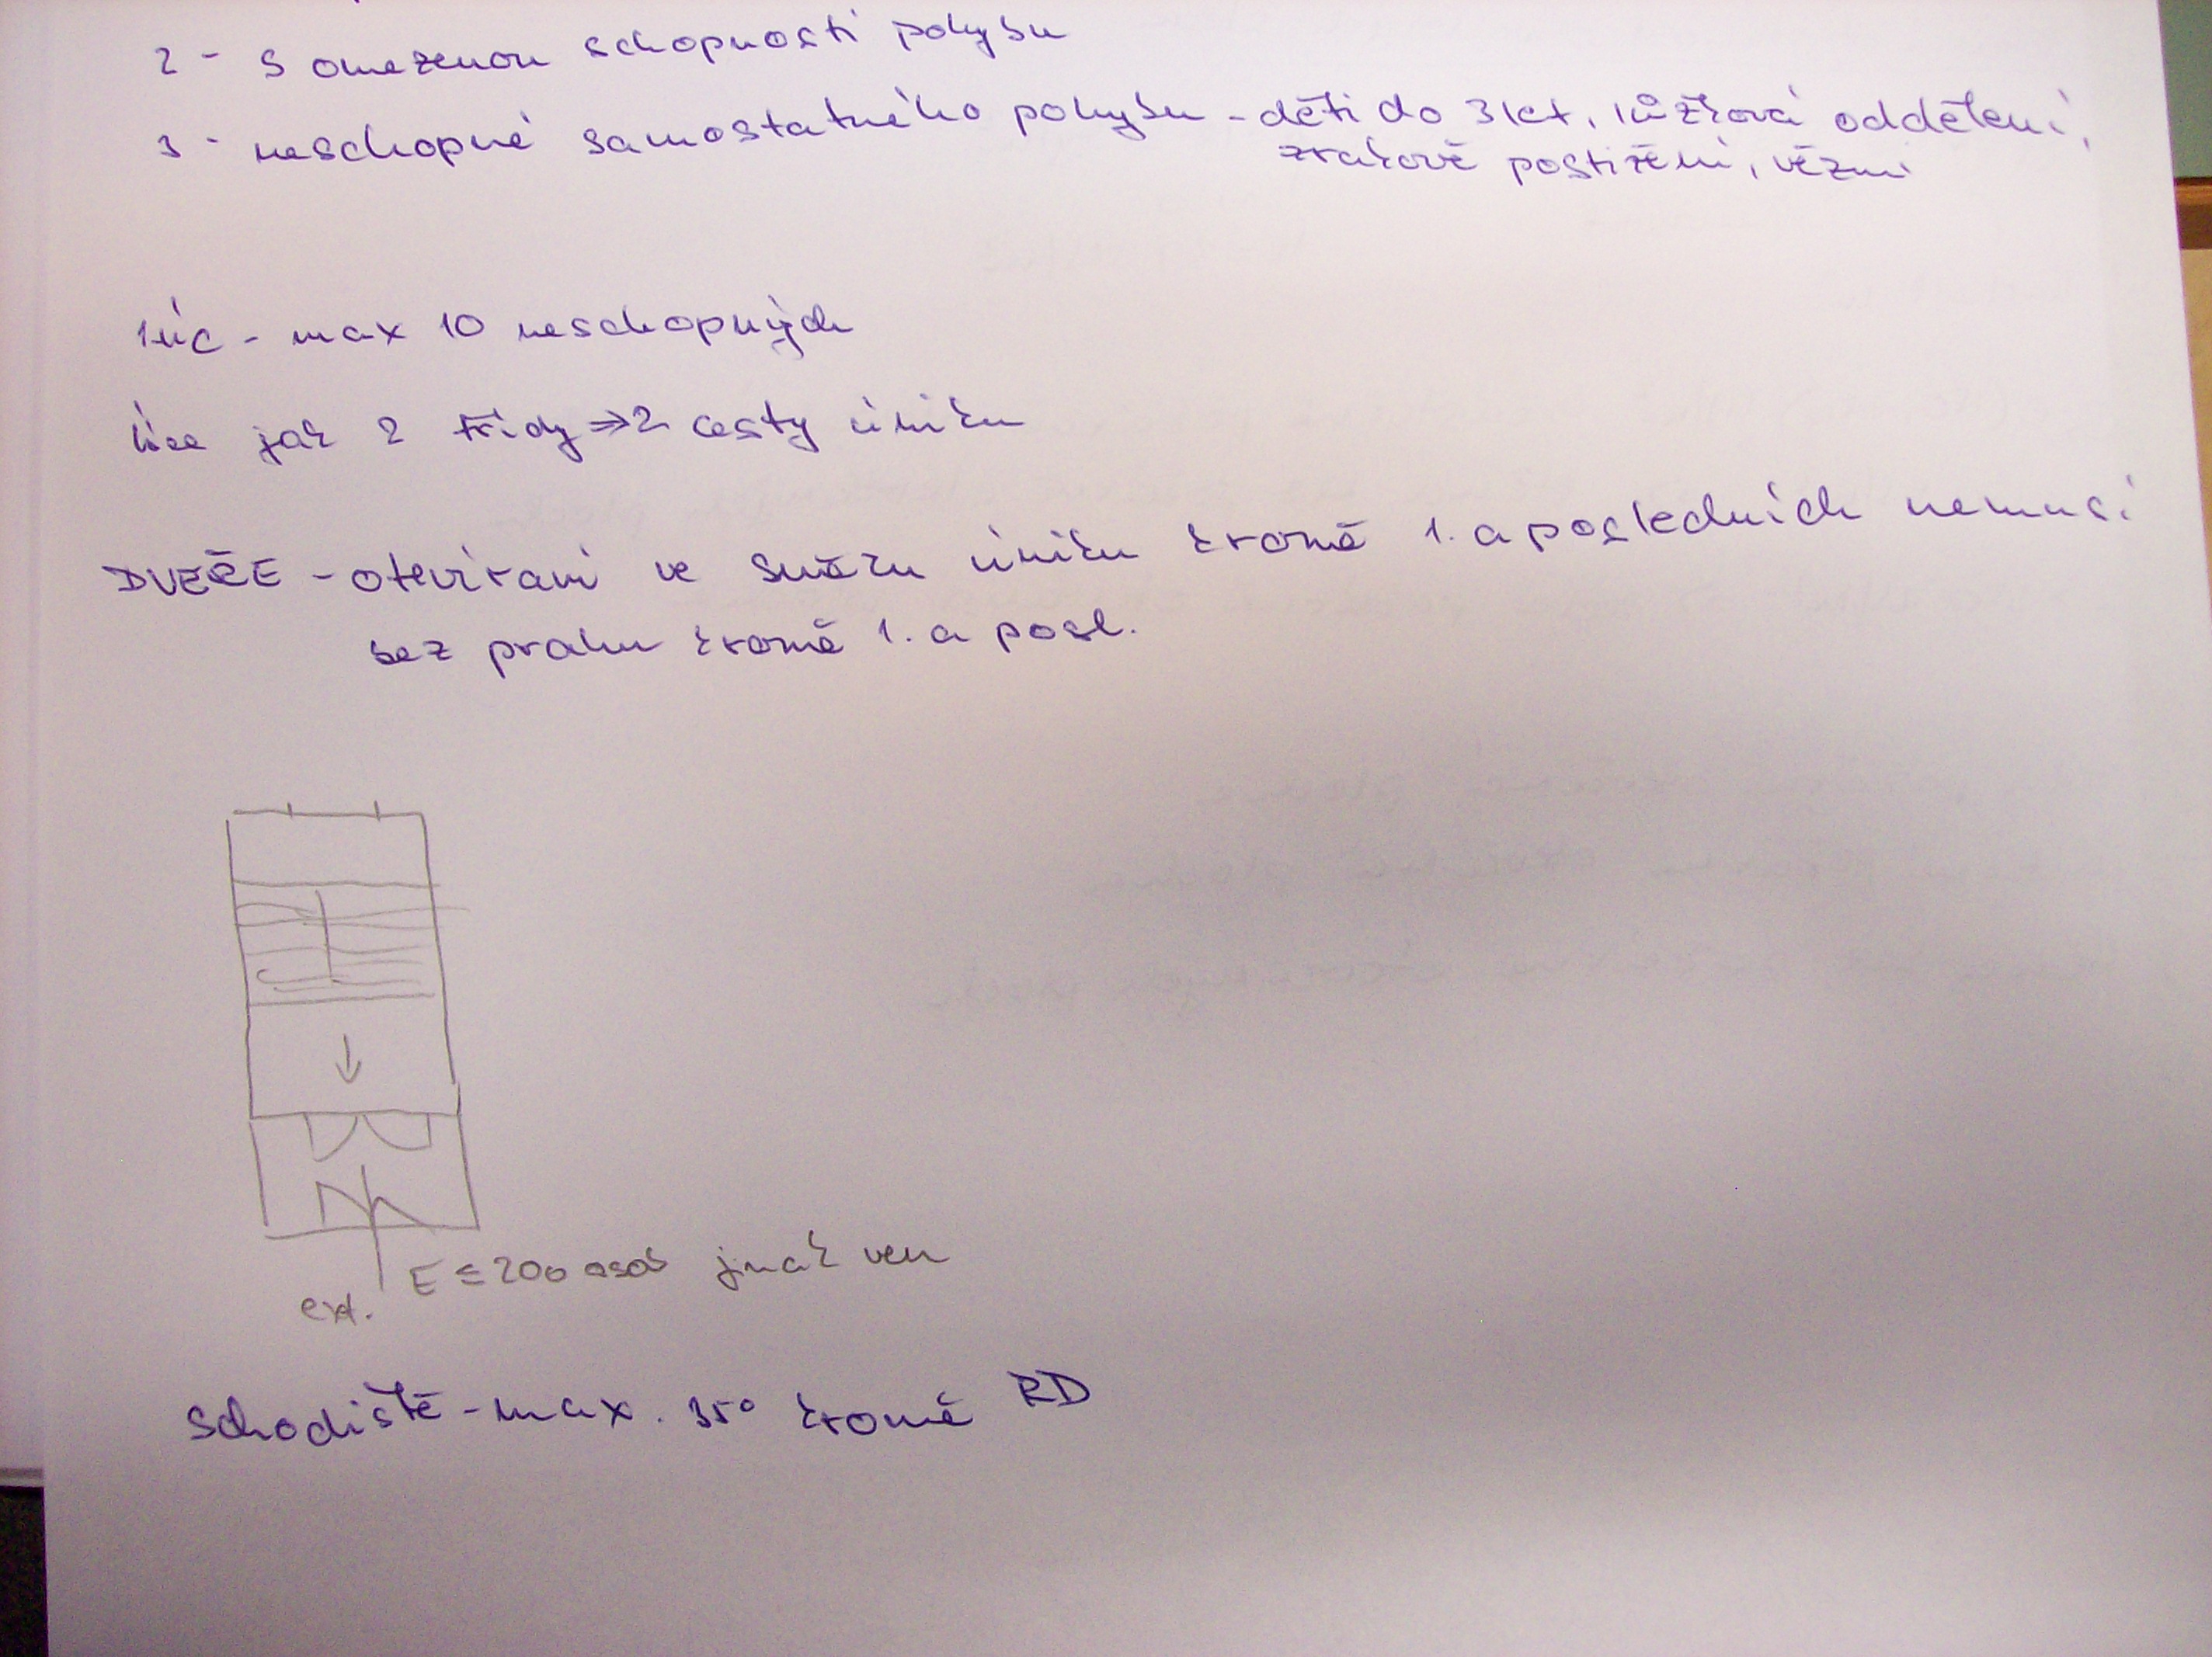 2 - s omezenou schopností pohybu
3 - neschopné samostatného pohybu - děti do 3 let, lůžková oddělení,
zrakově postižení, vězni
1 úc - max 10 neschopných
více jak 2 třídy ⇒ 2 cesty úniku
DVEŘE - otevírání ve směru úniku kromě 1. a posledních nemusí
bez prahu kromě 1. a posl.
E ≤ 200 osob jinak ven
ext.
Schodiště - max. 35° kromě RD